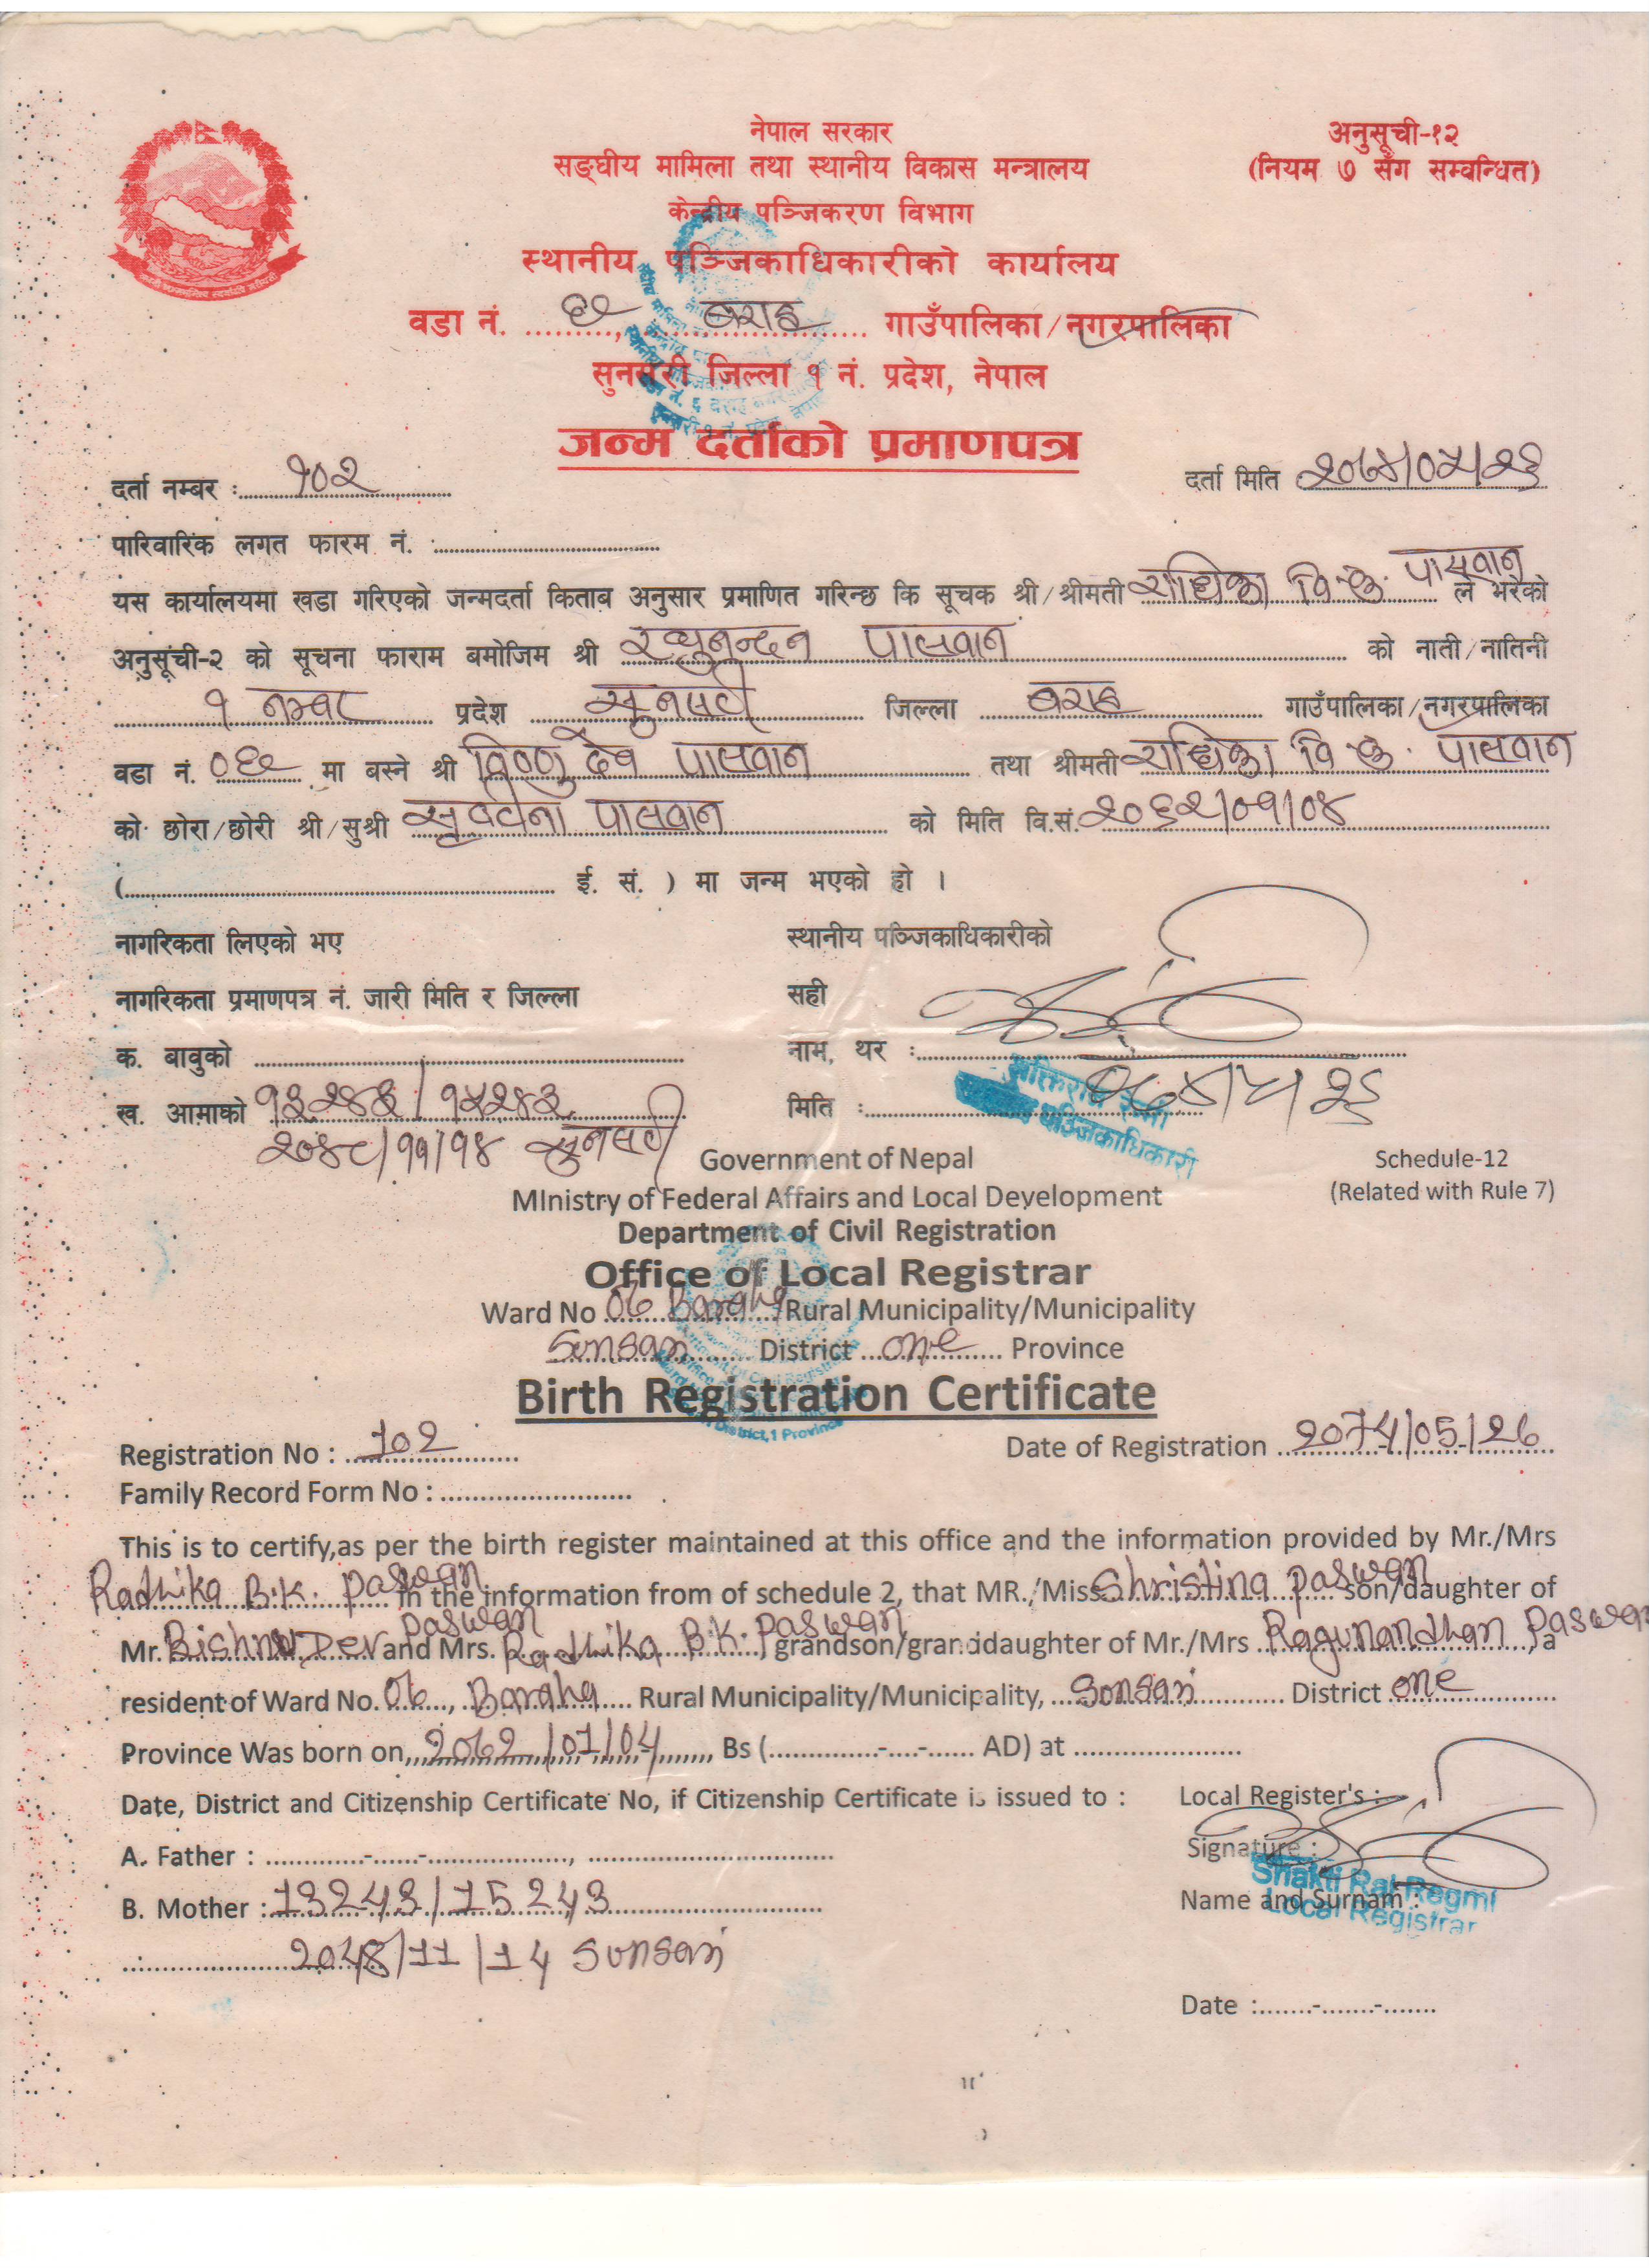 नेपाल सरकार
अनुसूची-१२
सङ्घीय मामिला तथा स्थानीय विकास मन्त्रालय
(नियम ७ सँग सम्बन्धित)
केन्द्रीय पञ्जिकरण विभाग
स्थानीय पञ्जिकाधिकारीको कार्यालय
वडा नं. ६, बराह गाउँपालिका/नगरपालिका
सुनसरी जिल्ला १ नं. प्रदेश, नेपाल
जन्म दर्ताको प्रमाणपत्र
दर्ता नम्बर : १०२ दर्ता मिति २०७४/०५/२६
पारिवारिक लगत फारम नं. :
यस कार्यालयमा खडा गरिएको जन्मदर्ता किताब अनुसार प्रमाणित गरिन्छ कि सूचक श्री/श्रीमती राधिका वि.क. पासवान ले भरेको
अनुसूची-२ को सूचना फाराम बमोजिम श्री रघुनन्दन पासवान को नाती/नातिनी
१ नम्बर प्रदेश सुनसरी जिल्ला बराह गाउँपालिका/नगरपालिका
वडा नं. ०६ मा बस्ने श्री विष्णु देव पासवान तथा श्रीमती राधिका वि.क. पासवान
को छोरा/छोरी श्री/सुश्री पासवान को मिति वि.सं. २०६२/०१/०४
( ई. सं. ) मा जन्म भएको हो ।
नागरिकता लिएको भए स्थानीय पञ्जिकाधिकारीको
नागरिकता प्रमाणपत्र नं. जारी मिति र जिल्ला सही
क. बावुको नाम, थर :
ख. आमाको १३२४३/१५२४३ मिति :
२०४८/११/१४ सुनसरी
पञ्जिकाधिकारी
Government of Nepal Schedule-12
MInistry of Federal Affairs and Local Development (Related with Rule 7)
Department of Civil Registration
Office of Local Registrar
Ward No 06 Baraha Rural Municipality/Municipality
Sunsari District one Province
Birth Registration Certificate
Registration No : 102 Date of Registration 2074/05/26
Family Record Form No :
This is to certify,as per the birth register maintained at this office and the information provided by Mr./Mrs
Radhika B.K. Paswan in the information from of schedule 2, that MR./Miss Shristina Paswan son/daughter of
Mr. Bishnu Dev Paswan and Mrs. Radhika B.K. Paswan, grandson/granddaughter of Mr./Mrs Ragunandhan Paswan, a
resident of Ward No. 06, Baraha Rural Municipality/Municipality, Sunsari District one
Province Was born on, 2062/01/04, Bs ( - - AD) at
Date, District and Citizenship Certificate No, if Citizenship Certificate is issued to : Local Register's :
A. Father : Signature :
B. Mother : 13243/15243 Name and Surnam :
Shakti Raj Regmi
Local Registrar
2048/11/14 Sunsari
Date :